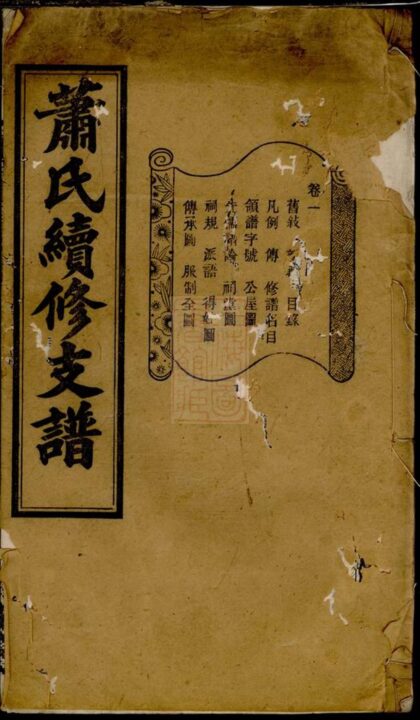 蕭氏續修支譜
卷一
舊敘 目錄
凡例 傳 修譜名目
領譜字號 公屋圖
祠圖
祠規 派語 得姓圖
傳承圖 服制全圖